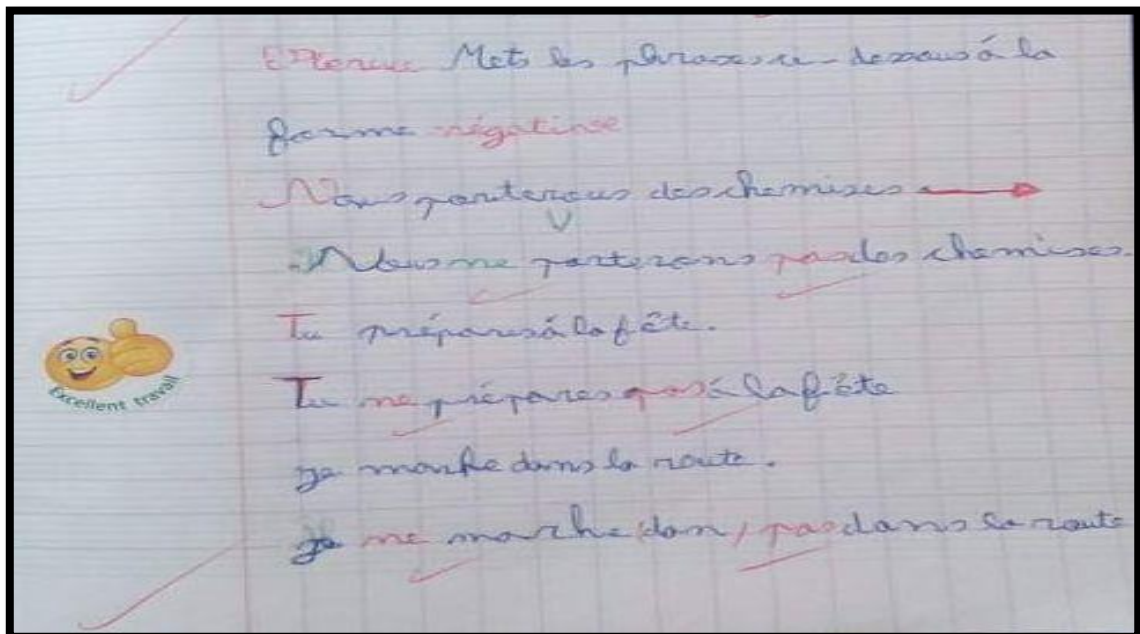 Mets les phrases ci-dessous à la
forme négative
Nous porterons des chemises
Nous ne porterons pas des chemises.
Tu prépares à la fête.
Tu ne prépares pas à la fête
je marche dans la route.
je ne marche (dan) pas dans la route
Excellent travail